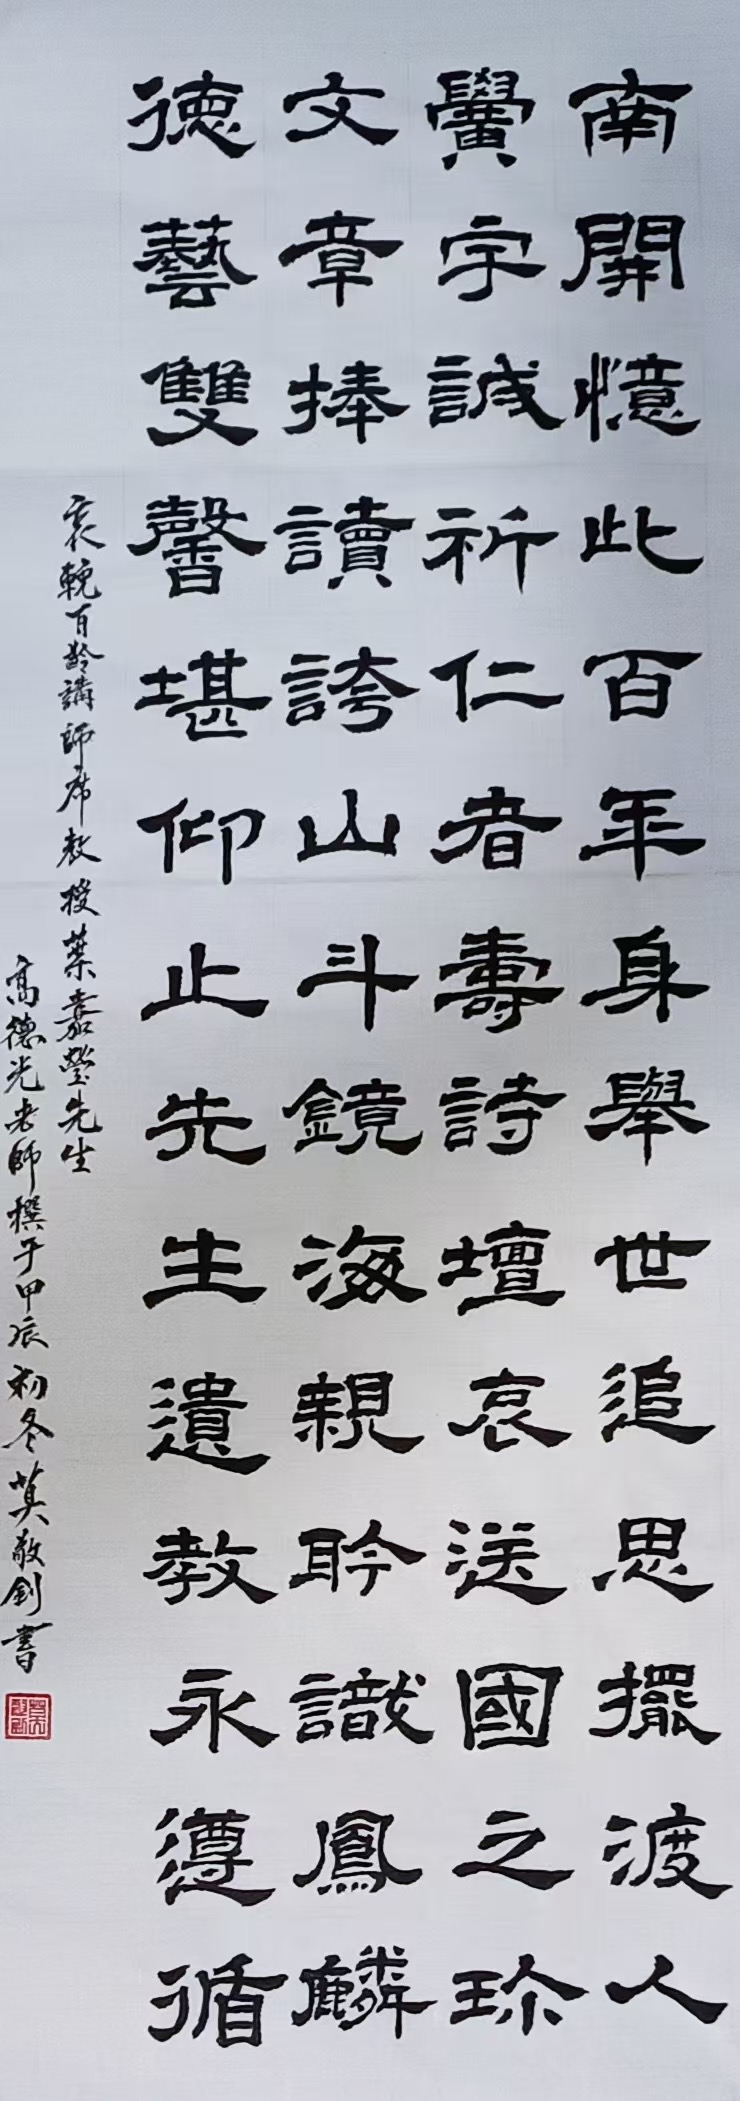 南開憶此百年身舉世追思擺渡人
黌宇誠祈仁者壽詩壇哀送國之珍
文章捧讀誇山斗鏡海親聆識鳳麟
德藝雙馨堪仰止先生遺教永遵循
哀輓百齡講師席教授葉嘉瑩先生
高德光老師撰于甲辰初冬莫敬釗書